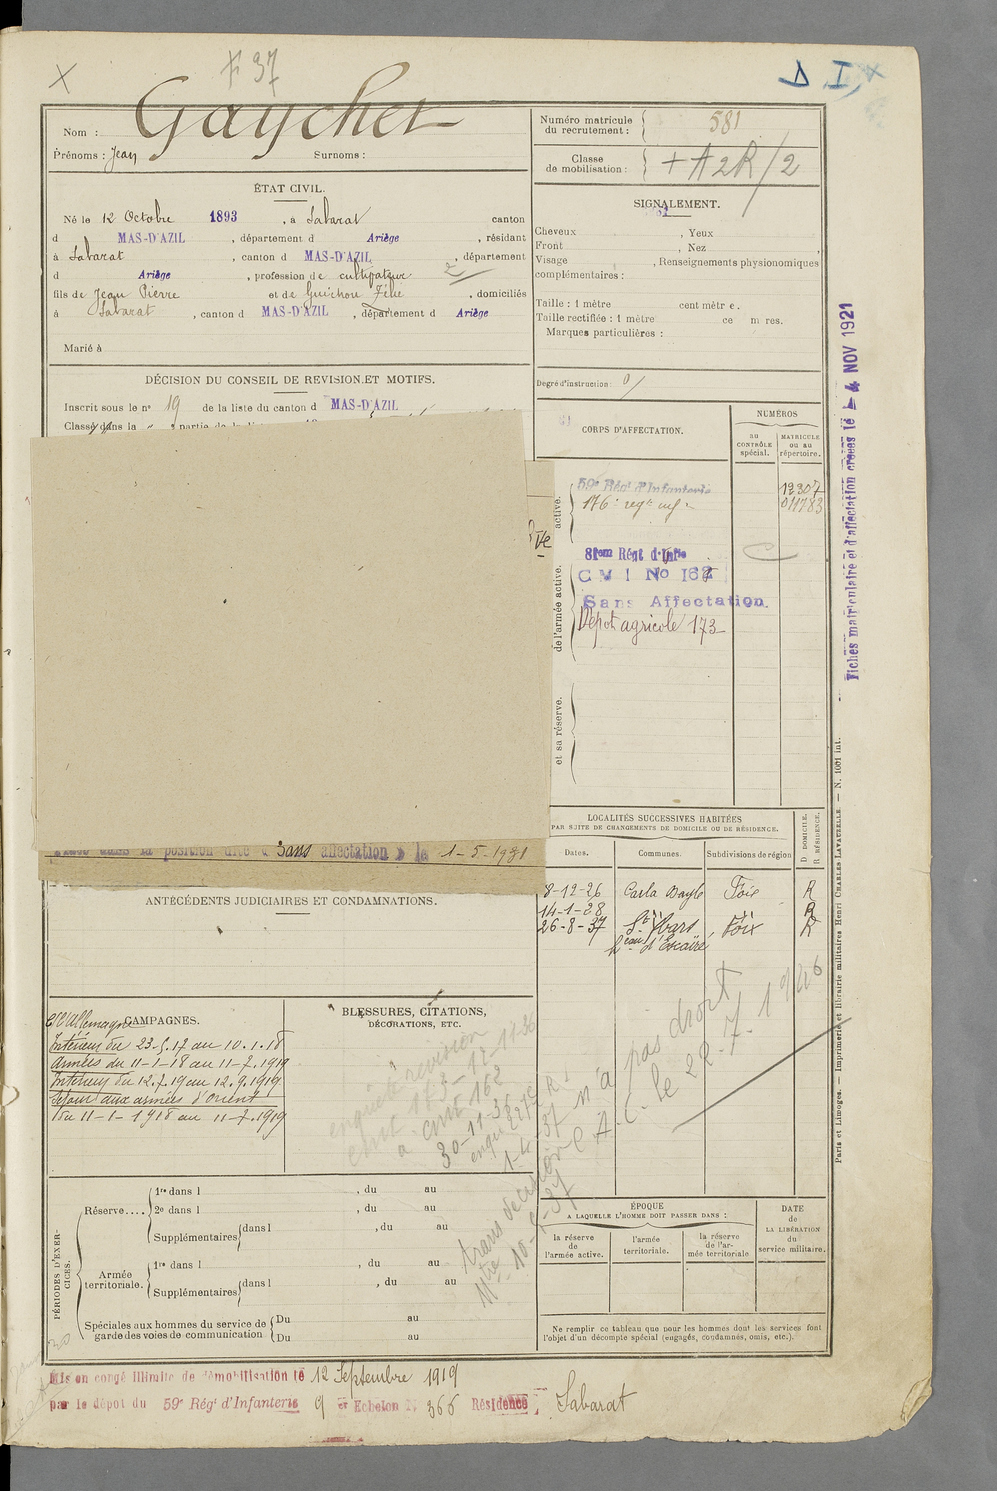 X
# 37
D I, X
Nom : Gaychet
Prénoms : Jean Surnoms :
Numéro matricule du recrutement : 581
Classe de mobilisation : + A 2R/2
ÉTAT CIVIL.
Né le 12 Octobre 1893, à Sabarat canton
d MAS-D'AZIL, département d Ariège, résidant
à Sabarat, canton d MAS-D'AZIL, département
d Ariège, profession de cultivateur
fils de Jean Pierre et de Guichou Félie, domiciliés
à Sabarat, canton d MAS-D'AZIL, département d Ariège
Marié à
SIGNALEMENT.
Cheveux , Yeux
Front , Nez
Visage , Renseignements physionomiques
complémentaires :
Taille : 1 mètre centimètre.
Taille rectifiée : 1 mètre ce m res.
Marques particulières :
Degré d'instruction : 0/
DÉCISION DU CONSEIL DE REVISION ET MOTIFS.
Inscrit sous le n° 19 de la liste du canton d MAS-D'AZIL
Classé dans la
CORPS D'AFFECTATION.
NUMÉROS
au CONTRÔLE spécial.
MATRICULE ou au répertoire.
active.
59e Régt d'Infanterie 12307
176e regt inf. 011783
de l'armée active.
81em Régt d'Infie
C M I No 162
Sans Affectation.
Dépot agricole 173
et sa réserve.
Fiches matriculaire et d'affection créées le 4 NOV 1921
placé dans la position dite « Sans affectation » le 1-5-1931
LOCALITÉS SUCCESSIVES HABITÉES
PAR SUITE DE CHANGEMENTS DE DOMICILE OU DE RÉSIDENCE.
Dates. Communes. Subdivisions de région
D DOMICILE. R RÉSIDENCE.
8-12-26 Carla Bayle Foix R
14-1-28 " " R
26-8-37 St Ybars Foix R
d'Escaïre
ANTÉCÉDENTS JUDICIAIRES ET CONDAMNATIONS.
CAMPAGNES.
c/ Allemagne
Intérieur du 23-5-17 au 10.1.18
Armées du 11-1-18 au 11-7-1919
Intérieur du 12.7.19 au 12.9.1919
Séjour aux armées d'Orient
Du 11-1-1918 au 11-7-1919
BLESSURES, CITATIONS,
DÉCORATIONS, ETC.
enquête revision
173-17-11-36
a CMI 162
30-11-36
n'a pas droit
C.A.C. le 22-7-1946
trans decision
PÉRIODES D'EXERCICES.
Réserve.... 1re dans l , du au
2e dans l , du au
Supplémentaires dans l , du au
Armée territoriale. 1re dans l , du au
Supplémentaires dans l , du au
Spéciales aux hommes du service de garde des voies de communication Du au
Du au
ÉPOQUE
A LAQUELLE L'HOMME DOIT PASSER DANS :
la réserve de l'armée active.
l'armée territoriale.
la réserve de l'armée territoriale
DATE de LA LIBÉRATION du service militaire.
Ne remplir ce tableau que pour les hommes dont les services font
l'objet d'un décompte spécial (engagés, condamnés, omis, etc.).
Paris et Limoges. — Imprimerie et librairie militaires Henri CHARLES LAVAUZELLE. — N. 1001 int.
Mis en congé illimité de démobilisation le 12 Septembre 1919
par le dépôt du 59e Régt d'Infanterie 9 er Echelon N. 366 Résidence Sabarat